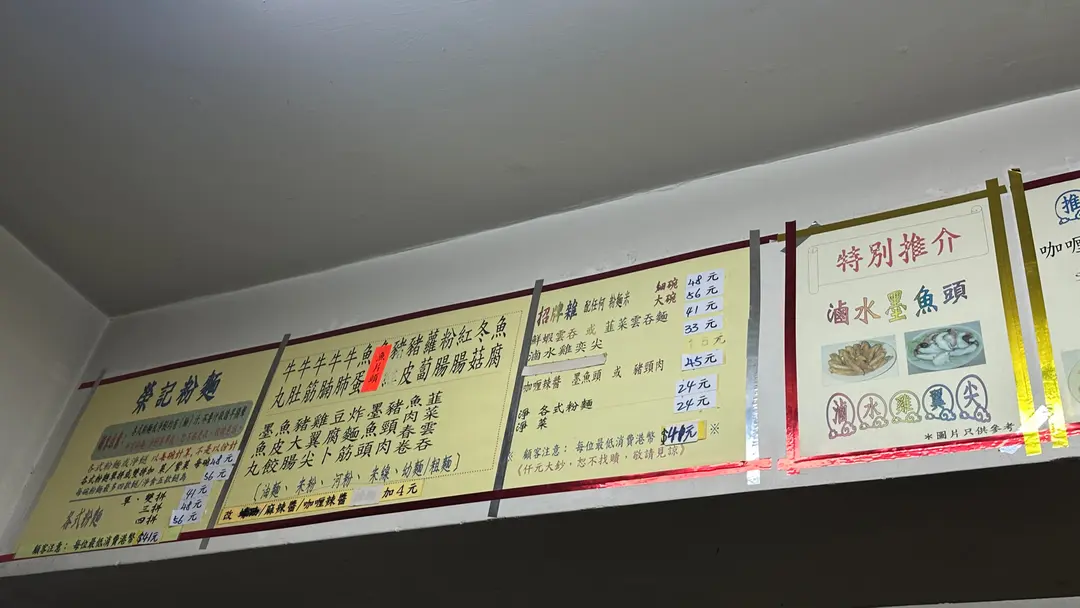 榮記粉麵
各式粉麵或淨餸，以每碗計算，不是以份計
48元
56元
泰式粉麵
單、雙拼 41元
三拼 48元
四拼 56元
顧客注意：每位最低消費港幣$41元
牛丸
牛肚
牛筋
牛腩
牛肺
魚蛋
魚片頭
豬皮
蘿蔔
粉腸
紅腸
冬菇
魚腐
墨魚丸
魚皮餃
豬大腸
雞翼尖
豆腐卜
炸麵筋
墨魚頭
豬頸肉
魚肉春卷
韮菜雲吞
〔油麵、米粉、河粉、米線、幼麵/粗麵〕
改 /麻辣醬/咖喱辣醬 加4元
招牌雜 配任何 粉麵米 細碗 48元
大碗 56元
鮮蝦雲吞 或 韮菜雲吞麵 41元
滷水雞奕尖 33元
咖喱辣醬 墨魚頭 或 豬頸肉 45元
淨 各式粉麵 24元
淨 菜 24元
※ 顧客注意：每位最低消費港幣 $41元 ※
《仟元大鈔，恕不找贖，敬請見諒》
特別推介
滷水墨魚頭
滷水雞翼尖
＊圖片只供參考
推
咖喱